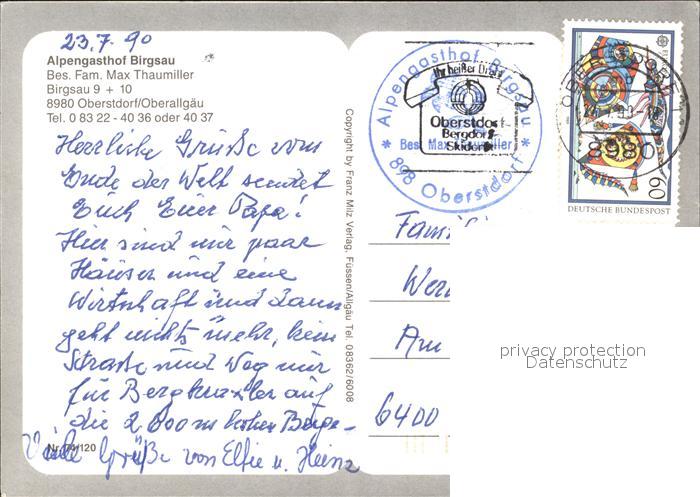 23.7.90
Alpengasthof Birgsau
Bes. Fam. Max Thaumiller
Birgsau 9 + 10
8980 Oberstdorf/Oberallgäu
Tel. 0 83 22 - 40 36 oder 40 37
Herzliche Grüße vom
Ende der Welt sendet
Euch Euer Papa!
Hier sind nur paar
Häuser und eine
Wirtschaft und dann
geht nichts mehr, kein
Straße und Weg nur
für Bergkraxler auf
die 2 000 m hohen Berge –
Viele Grüße von Elfie u. Heinz
Copyright by Franz Milz Verlag, Füssen/Allgäu Tel. 08362/6008
Alpengasthof Birgsau
Bes. Max
898 Oberstdorf
Ihr heißer Draht
Oberstdorf
Bergdorf
Skidorf
OBERSTDORF
8980
60
DEUTSCHE BUNDESPOST
Am
6400
privacy protection
Datenschutz